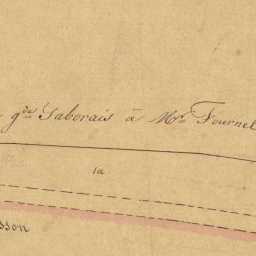 gde Taborais à Mr Fournel
1a
sson